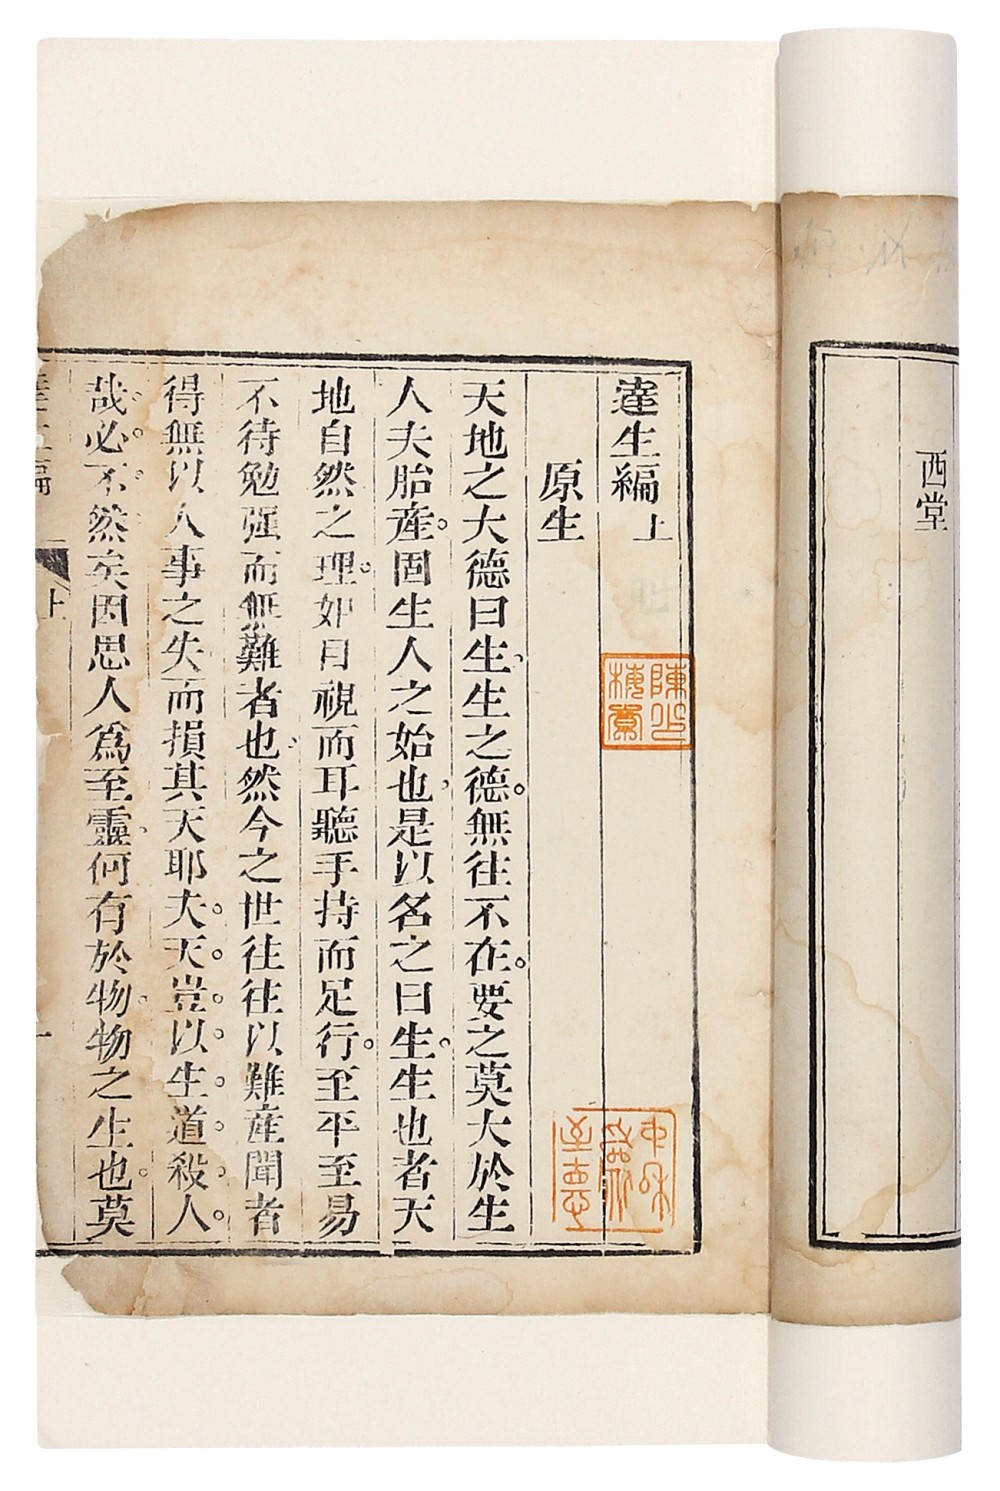 西堂
達生編 上
原生
天地之大德曰生生之德無往不在要之莫大於生
人夫胎產固生人之始也是以名之曰生生也者天
地自然之理如目視而耳聽手持而足行至平至易
不待勉强而無難者也然今之世往往以難產聞者
得無以人事之失而損其天耶夫天豈以生道殺人
哉必不然矣因思人爲至靈何有於物物之生也莫
達生編 上 一